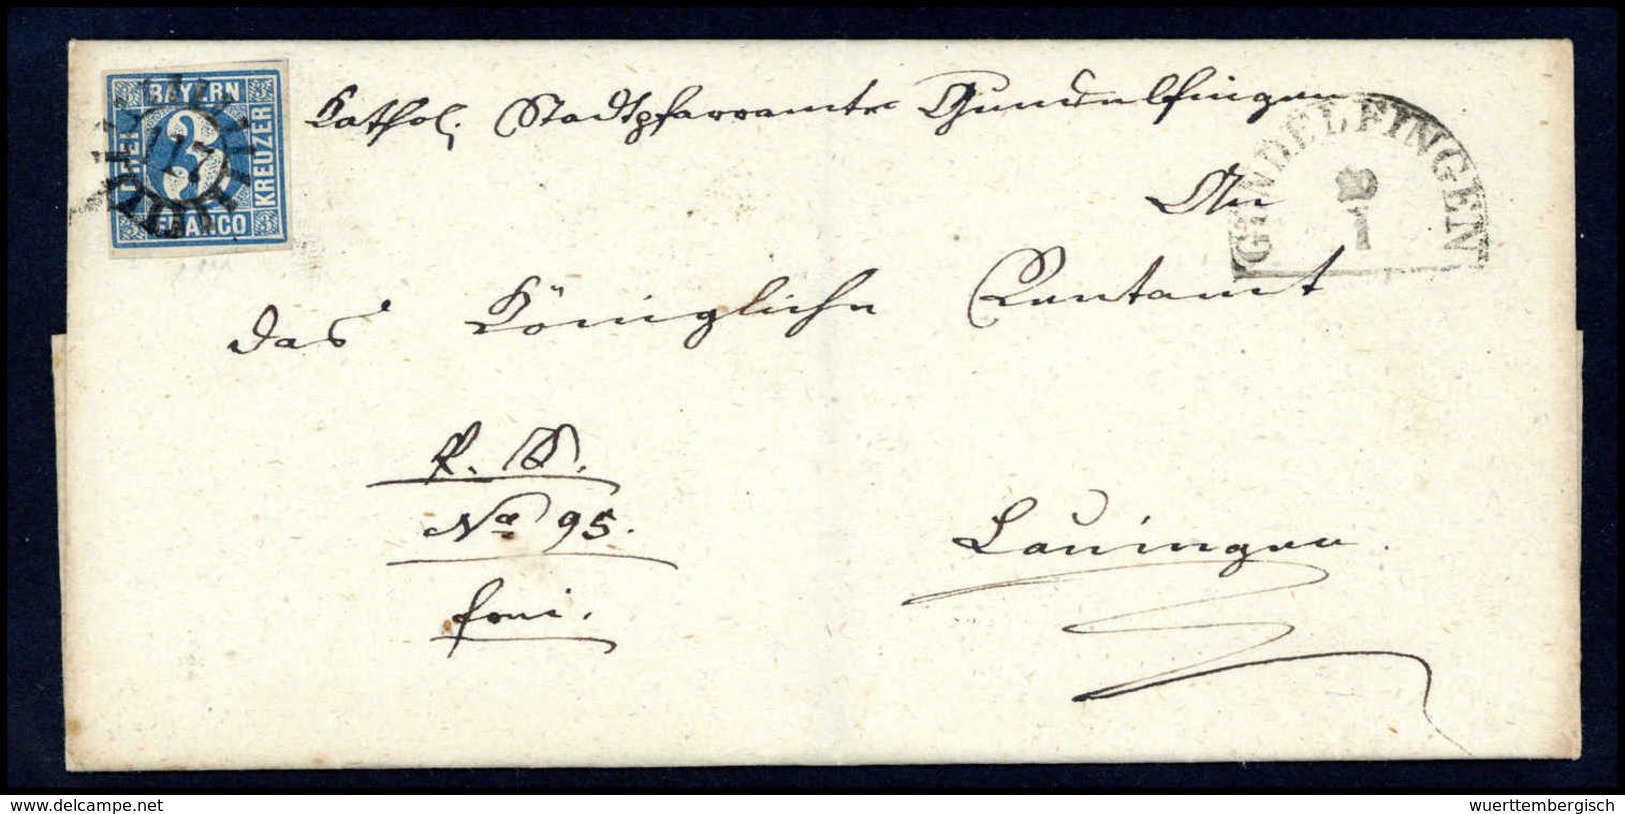 BAYERN
DREI
3
KREUZER
FRANCO
117
Kathol. Stadtpfarramte Gundelfingen
GUNDELFINGEN
1
An
das Königliche Rentamt
R. S.
No 95.
Lauingen.
www.delcampe.net
wuerttembergisch